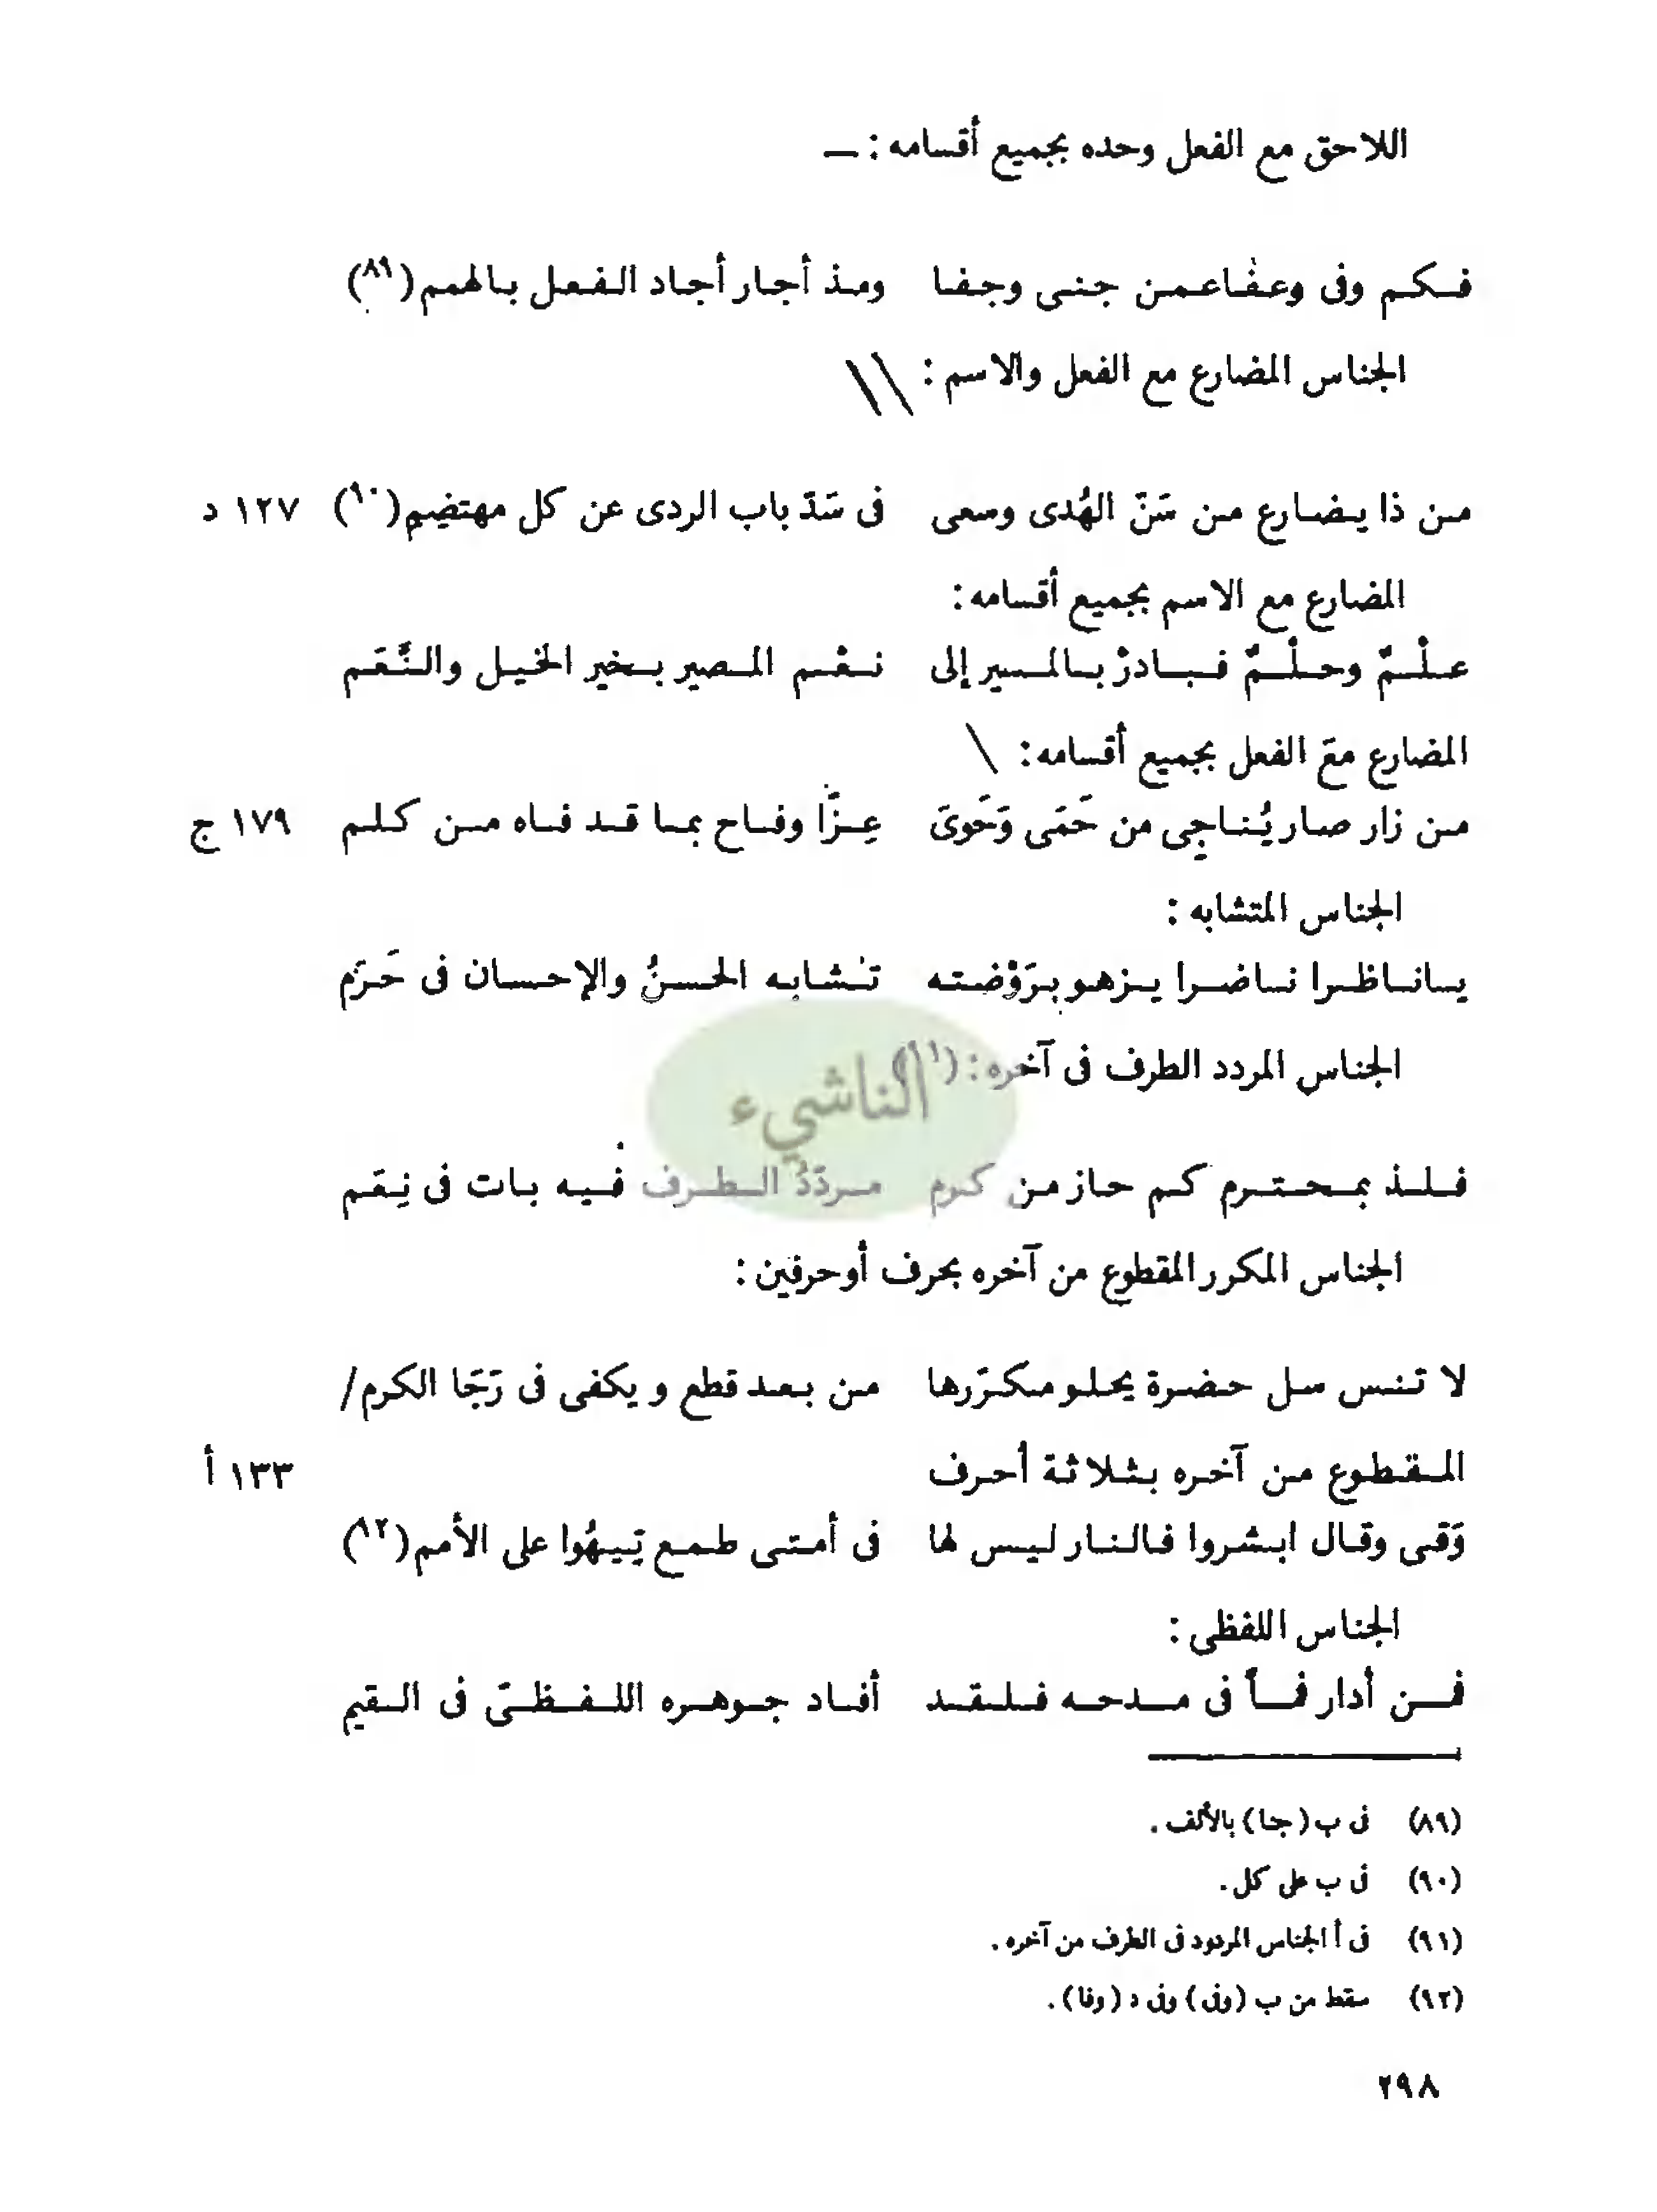 اللاحق مع الفعل وحده بجميع أقسامه : ـ
فـكـم وفى وعـفـاعـمـن جـنـى وجـفـا ومـذ أجـار أجـاد الـفـعـل بـالهمم(٨٩)
الجناس المضارع مع الفعل والاسم : \\
مـن ذا يـضـارع مـن سَنّ الهُدى وسعى فى سَدّ باب الردى عن كل مهتضِم(٩٠) ١٢٧ د
المضارع مع الاسم بجميع أقسامه:
عـلْـمٌ وحـلْـمٌ فـبـادرْ بـالمـسير إلى نـعْـم المـصير بـخير الخيـل والـنَّـعَـم
المضارع معَ الفعل بجميع أقسامه: \
مـن زار صـار يُـنـاجِـى من حَمَى وَحَوىَ عِـزًّا وفـاح بمـا قـد فـاه مـن كـلـم ١٧٩ ج
الجناس المتشابه :
يـانـاظـرا نـاضـرا يـزهـو بـرَوْضتـه تـشـابـه الحـسـنُ والإحـسـان فى حَـرَم
الجناس المردد الطرف فى آخره : (٩١)
فـلـذ بمـحـتـرم كـم حـاز مـن كـرم مـردّدُ الـطـرف فـيـه بـات فى نِـعَـم
الجناس المكرر المقطوع من آخره بحرف أوحرفين :
لا تـنـس سـل حـضـرة يحـلـو مـكـرّرهـا مـن بـعـد قطع و يكفى فى رَجَا الكرم/
المـقـطـوع مـن آخـره بـثـلاثـة أحـرف ١٣٣ أ
وَقـى وقـال ابـشـروا فـالـنـار ليـس لها فى أمـتـى طـمـع تِـيـهُوا على الأمم(٩٢)
الجناس اللفظى :
فــن أدار فــاً فى مــدحــه فـلـقـد أفـاد جـوهـره اللـفـظـىّ فى الـقيم
(٨٩) فى ب (جنا) بالألف .
(٩٠) فى ب على كل .
(٩١) فى أ الجناس المردود فى الطرف من آخره .
(٩٢) سقط من ب (وفى) وفى د (وفا) .
٢٩٨
الناشيء